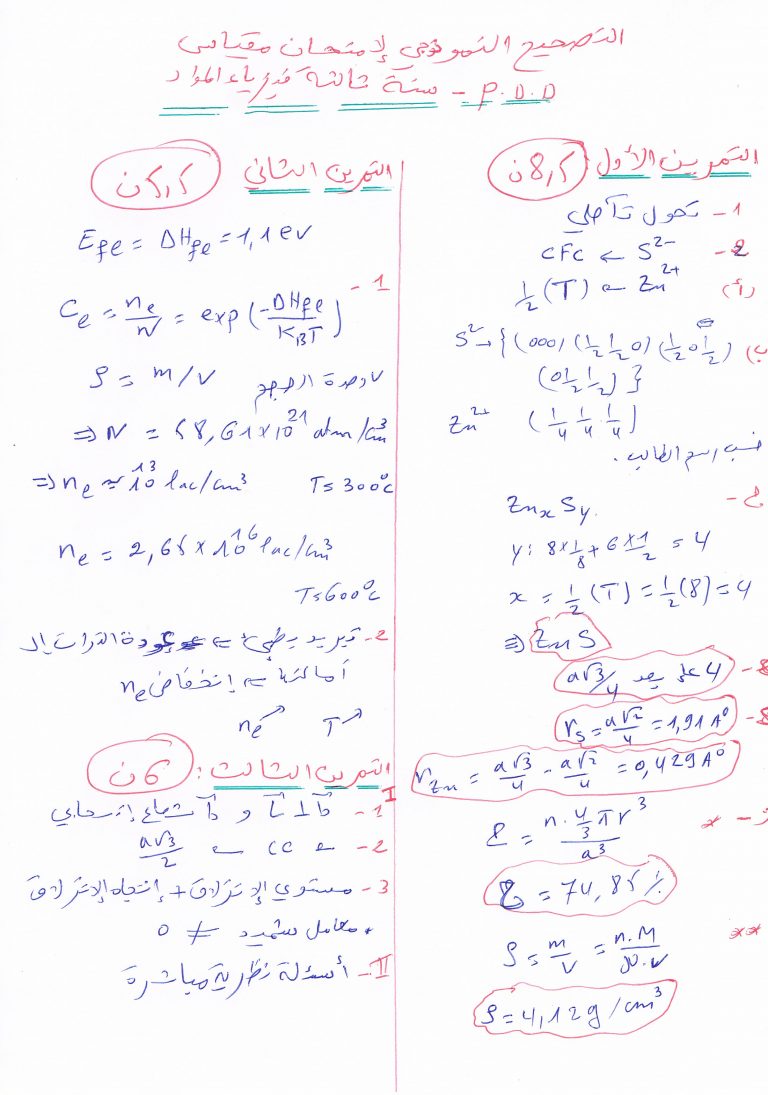 التصحيح النموذجي لإمتحان مقياس
P.D.D - سنة ثالثة فيزياء المواد
التمرين الأول: 8,5ن
1- تحول تآصلي
2- S²⁻ → CFC
أ) Zn²⁺ → 1/2 (T)
ب) S²⁻ → {(000) (1/2 1/2 0) (1/2 0 1/2)
(0 1/2 1/2)}
Zn²⁺ (1/4 1/4 1/4)
حسب رسم الطالب.
ج- Znₓ Sy.
y: 8×1/8 + 6×1/2 = 4
x = 1/2 (T) = 1/2 (8) = 4
⇒ Zn S
4 على بعد a√3/4
rs = a√2/4 = 1,91 A°
rZn = a√3/4 - a√2/4 = 0,429 A°
* ξ = n.4/3 π r³ / a³
ξ = 74,85 %
** ρ = m/v = n.M/N.v
ρ = 4,12 g/cm³
التمرين الثاني 5,5ن
Efe = ΔHfe = 1,1 ev
1- Ce = ne/N = exp(-ΔHfe/KBT)
ρ = m/v وحدة الحجم
⇒ N = 58,61×10²¹ atm/cm³
⇒ ne ≈ 10¹³ lac/cm³ T = 300°c
ne = 2,65 × 10¹⁶ lac/cm³
T = 600°c
2- تبريد بطيء ⇐ عودة الذرات إلى
أماكنها ⇐ إنخفاض ne
ne↗ T↗
التمرين الثالث: 6ن
I
2- CC → a√3/2
3- مستوي الإنزلاق + إتجاه الإنزلاق
+ معامل شميد ≠ 0
II- أسئلة نظرية مباشرة